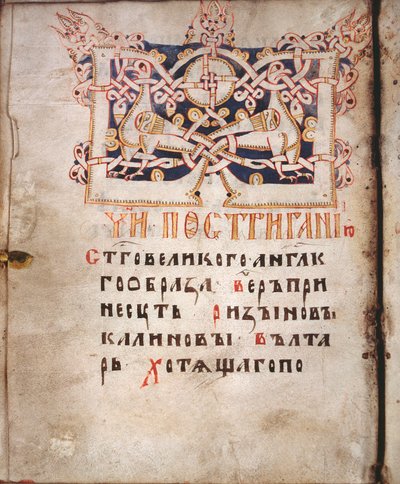 ЧИ҃Н ПОСТРИГАНІЮ
СТГ҃ОВЕЛИКОГО·АНГЛК
ГООБРАZА· ВЕ҃РЪПРИ
НЕСКТЬ РИZЫНОВЪ·
КАЛИНОВЫ· ВЪЛТА
РЬ· ХОТѦЩАГОПО